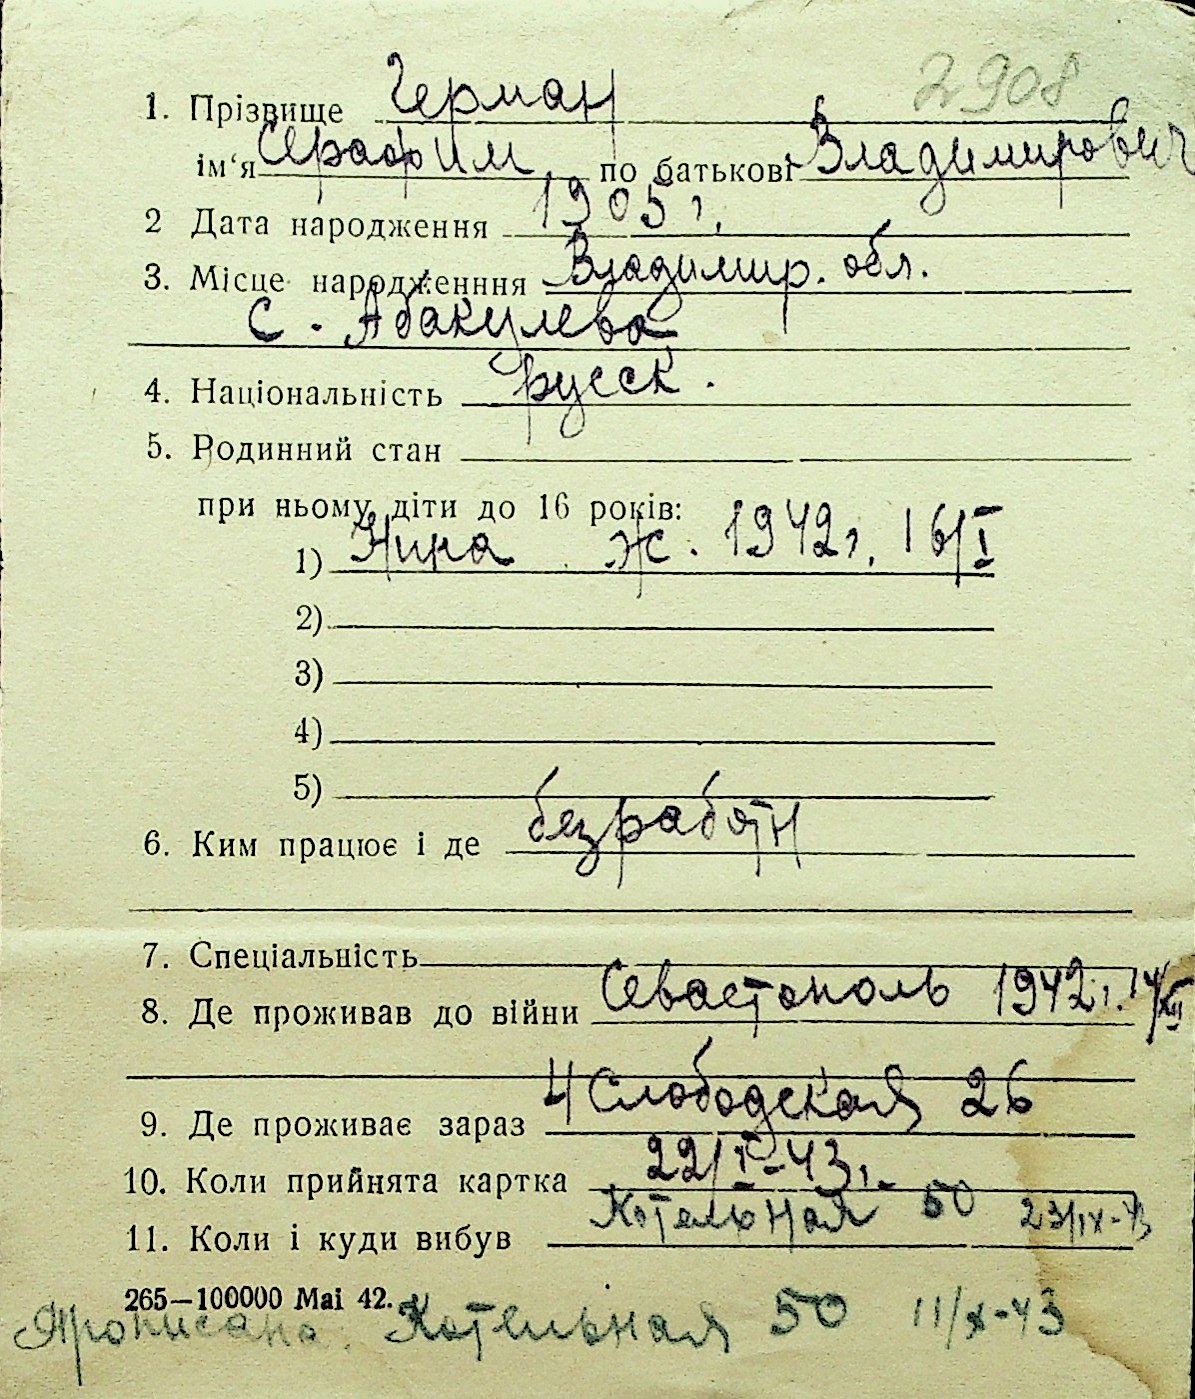 2908
1. Прізвище Герман
ім‘я Серафим по батькові Владимирович
2 Дата народження 1905 г.
3. Місце народженння Владимир. обл.
с. Абакулева
4. Національність русск.
5. Родинний стан
при ньому діти до 16 років:
1) Нина ж. 1942 г. 16/I
2)
3)
4)
5)
6. Ким працює і де безработн
7. Спеціальність
8. Де проживав до війни Севастополь 1942 г. 14/XII
9. Де проживає зараз 4 Слободская 26
10. Коли прийнята картка 22/I-43 г.
11. Коли і куди вибув Котельная 50 23/IX-43
265—100000 Mai 42.
Прописана: Котельная 50 11/X-43